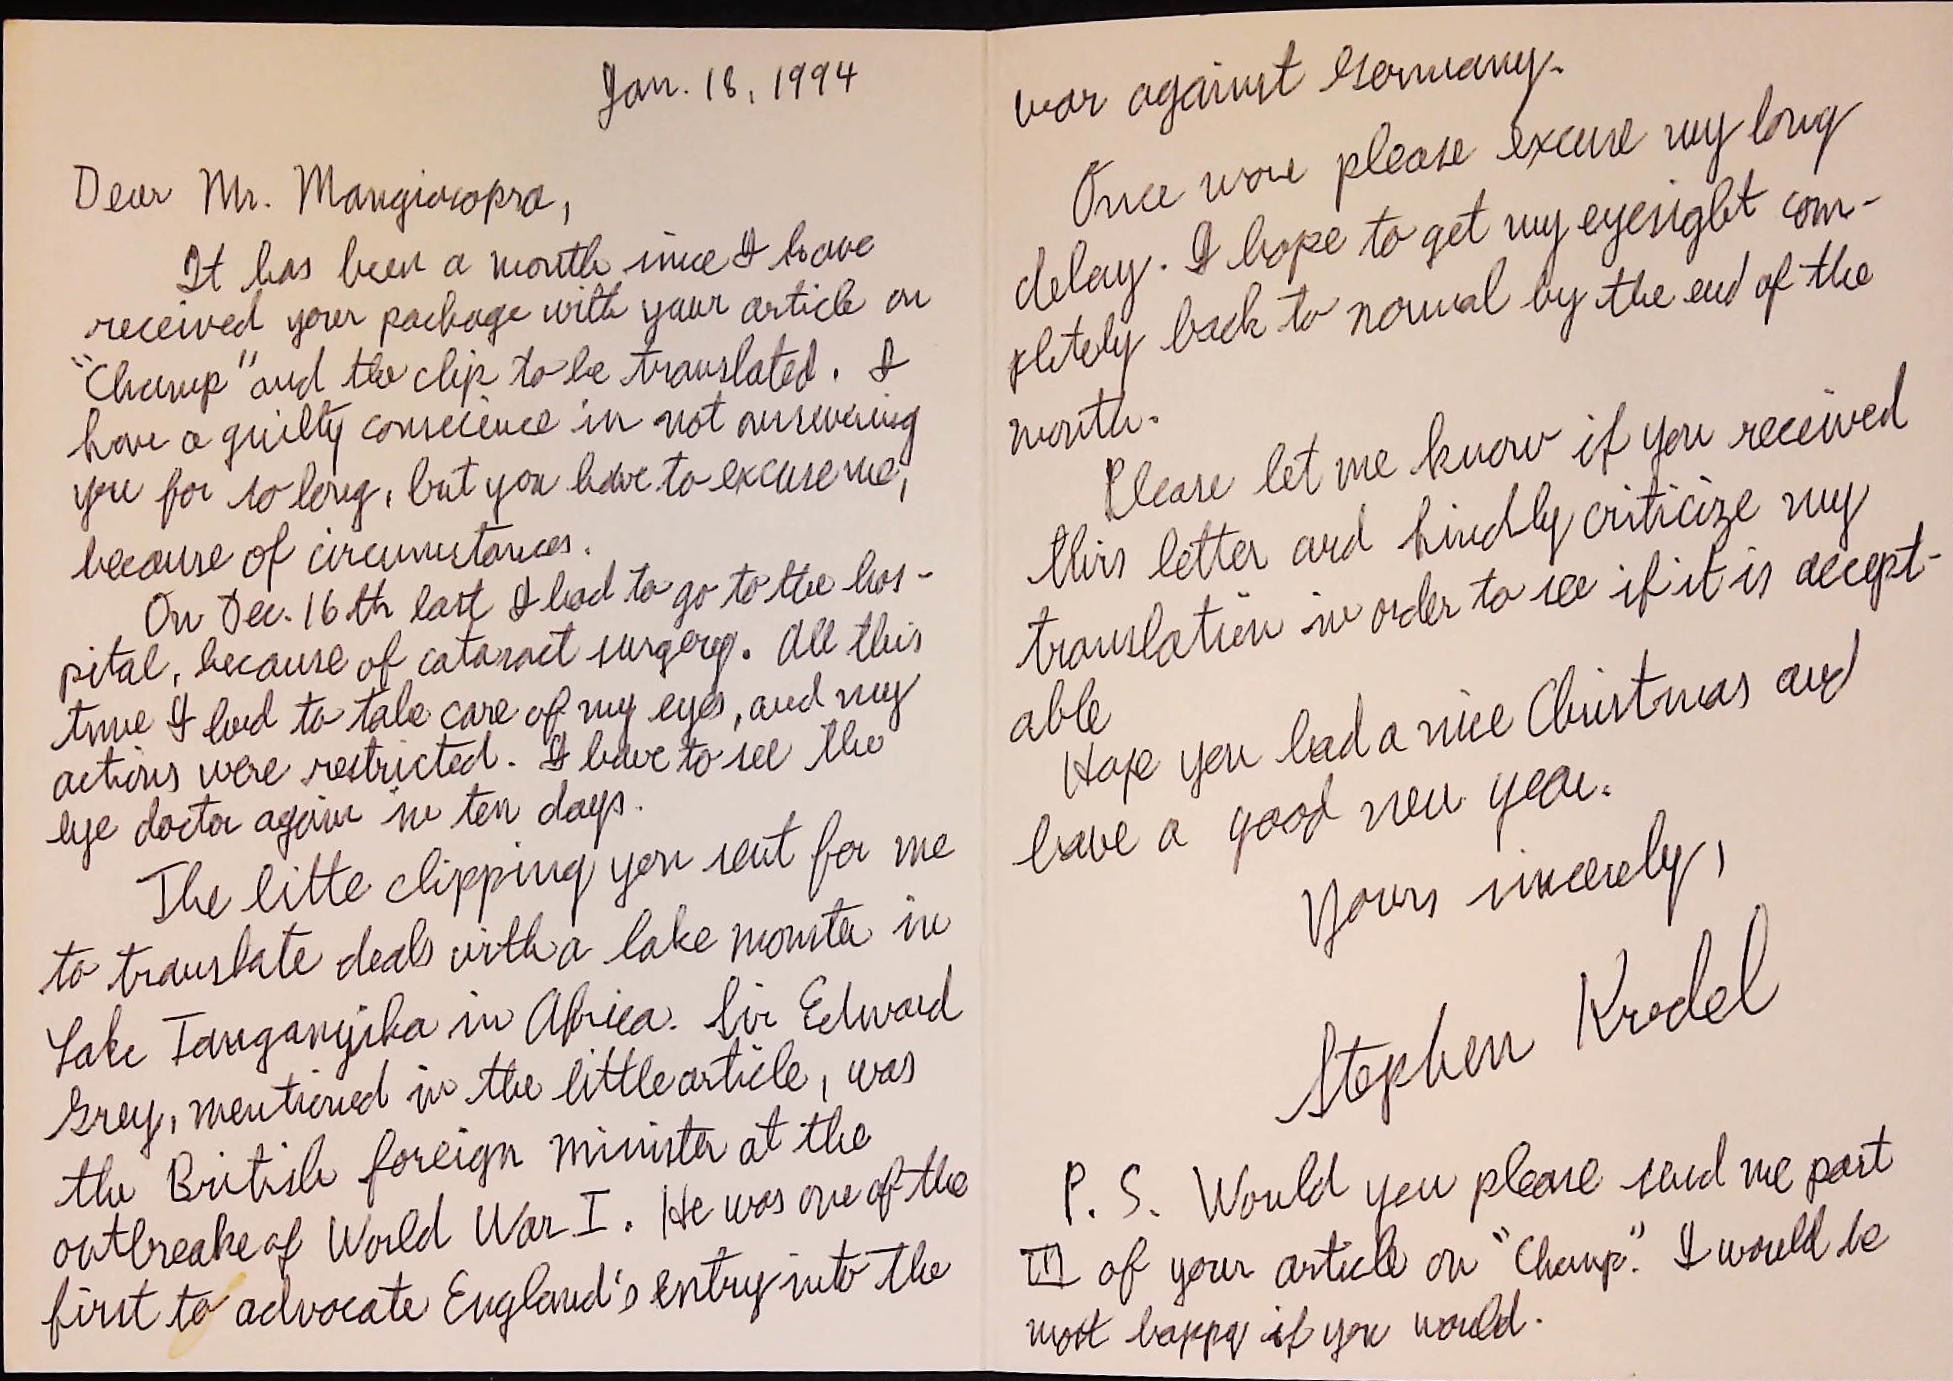 Jan. 18, 1994
Dear Mr. Mangiacopra,
It has been a month since I have
received your package with your article on
"Champ" and the clip to be translated. I
have a guilty conscience in not answering
you for so long, but you have to excuse me,
because of circumstances.
On Dec. 16th last I had to go to the hos-
pital, because of cataract surgery. All this
time I had to take care of my eyes, and my
actions were restricted. I have to see the
eye doctor again in ten days.
The litte clipping you sent for me
to translate deals with a lake monster in
Lake Tanganyika in Africa. Sir Edward
Grey, mentioned in the little article, was
the British foreign minister at the
outbreake of World War I. He was one of the
first to advocate England's entry into the
war against Germany.
Once more please excuse my long
delay. I hope to get my eyesight com-
pletely back to normal by the end of the
month.
Please let me know if you received
this letter and kindly criticize my
translation in order to see if it is accept-
able
Hope you had a nice Christmas and
have a good new year.
Yours sincerely,
Stephen Krodel
P. S. Would you please send me part
III of your article on "Champ". I would be
most happy if you would.